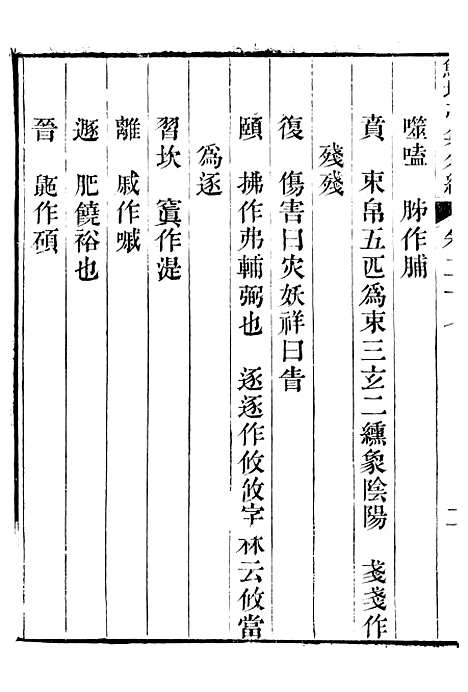 噬嗑　胏作脯
賁　束帛五匹爲束三玄二纁象陰陽　戔戔作
殘殘
復　傷害曰灾妖祥曰眚
頤　拂作弗輔弼也　逐逐作攸攸字林云攸當
爲逐
習坎　寘作湜
離　戚作嘁
遯　肥饒裕也
晉　鼫作碩